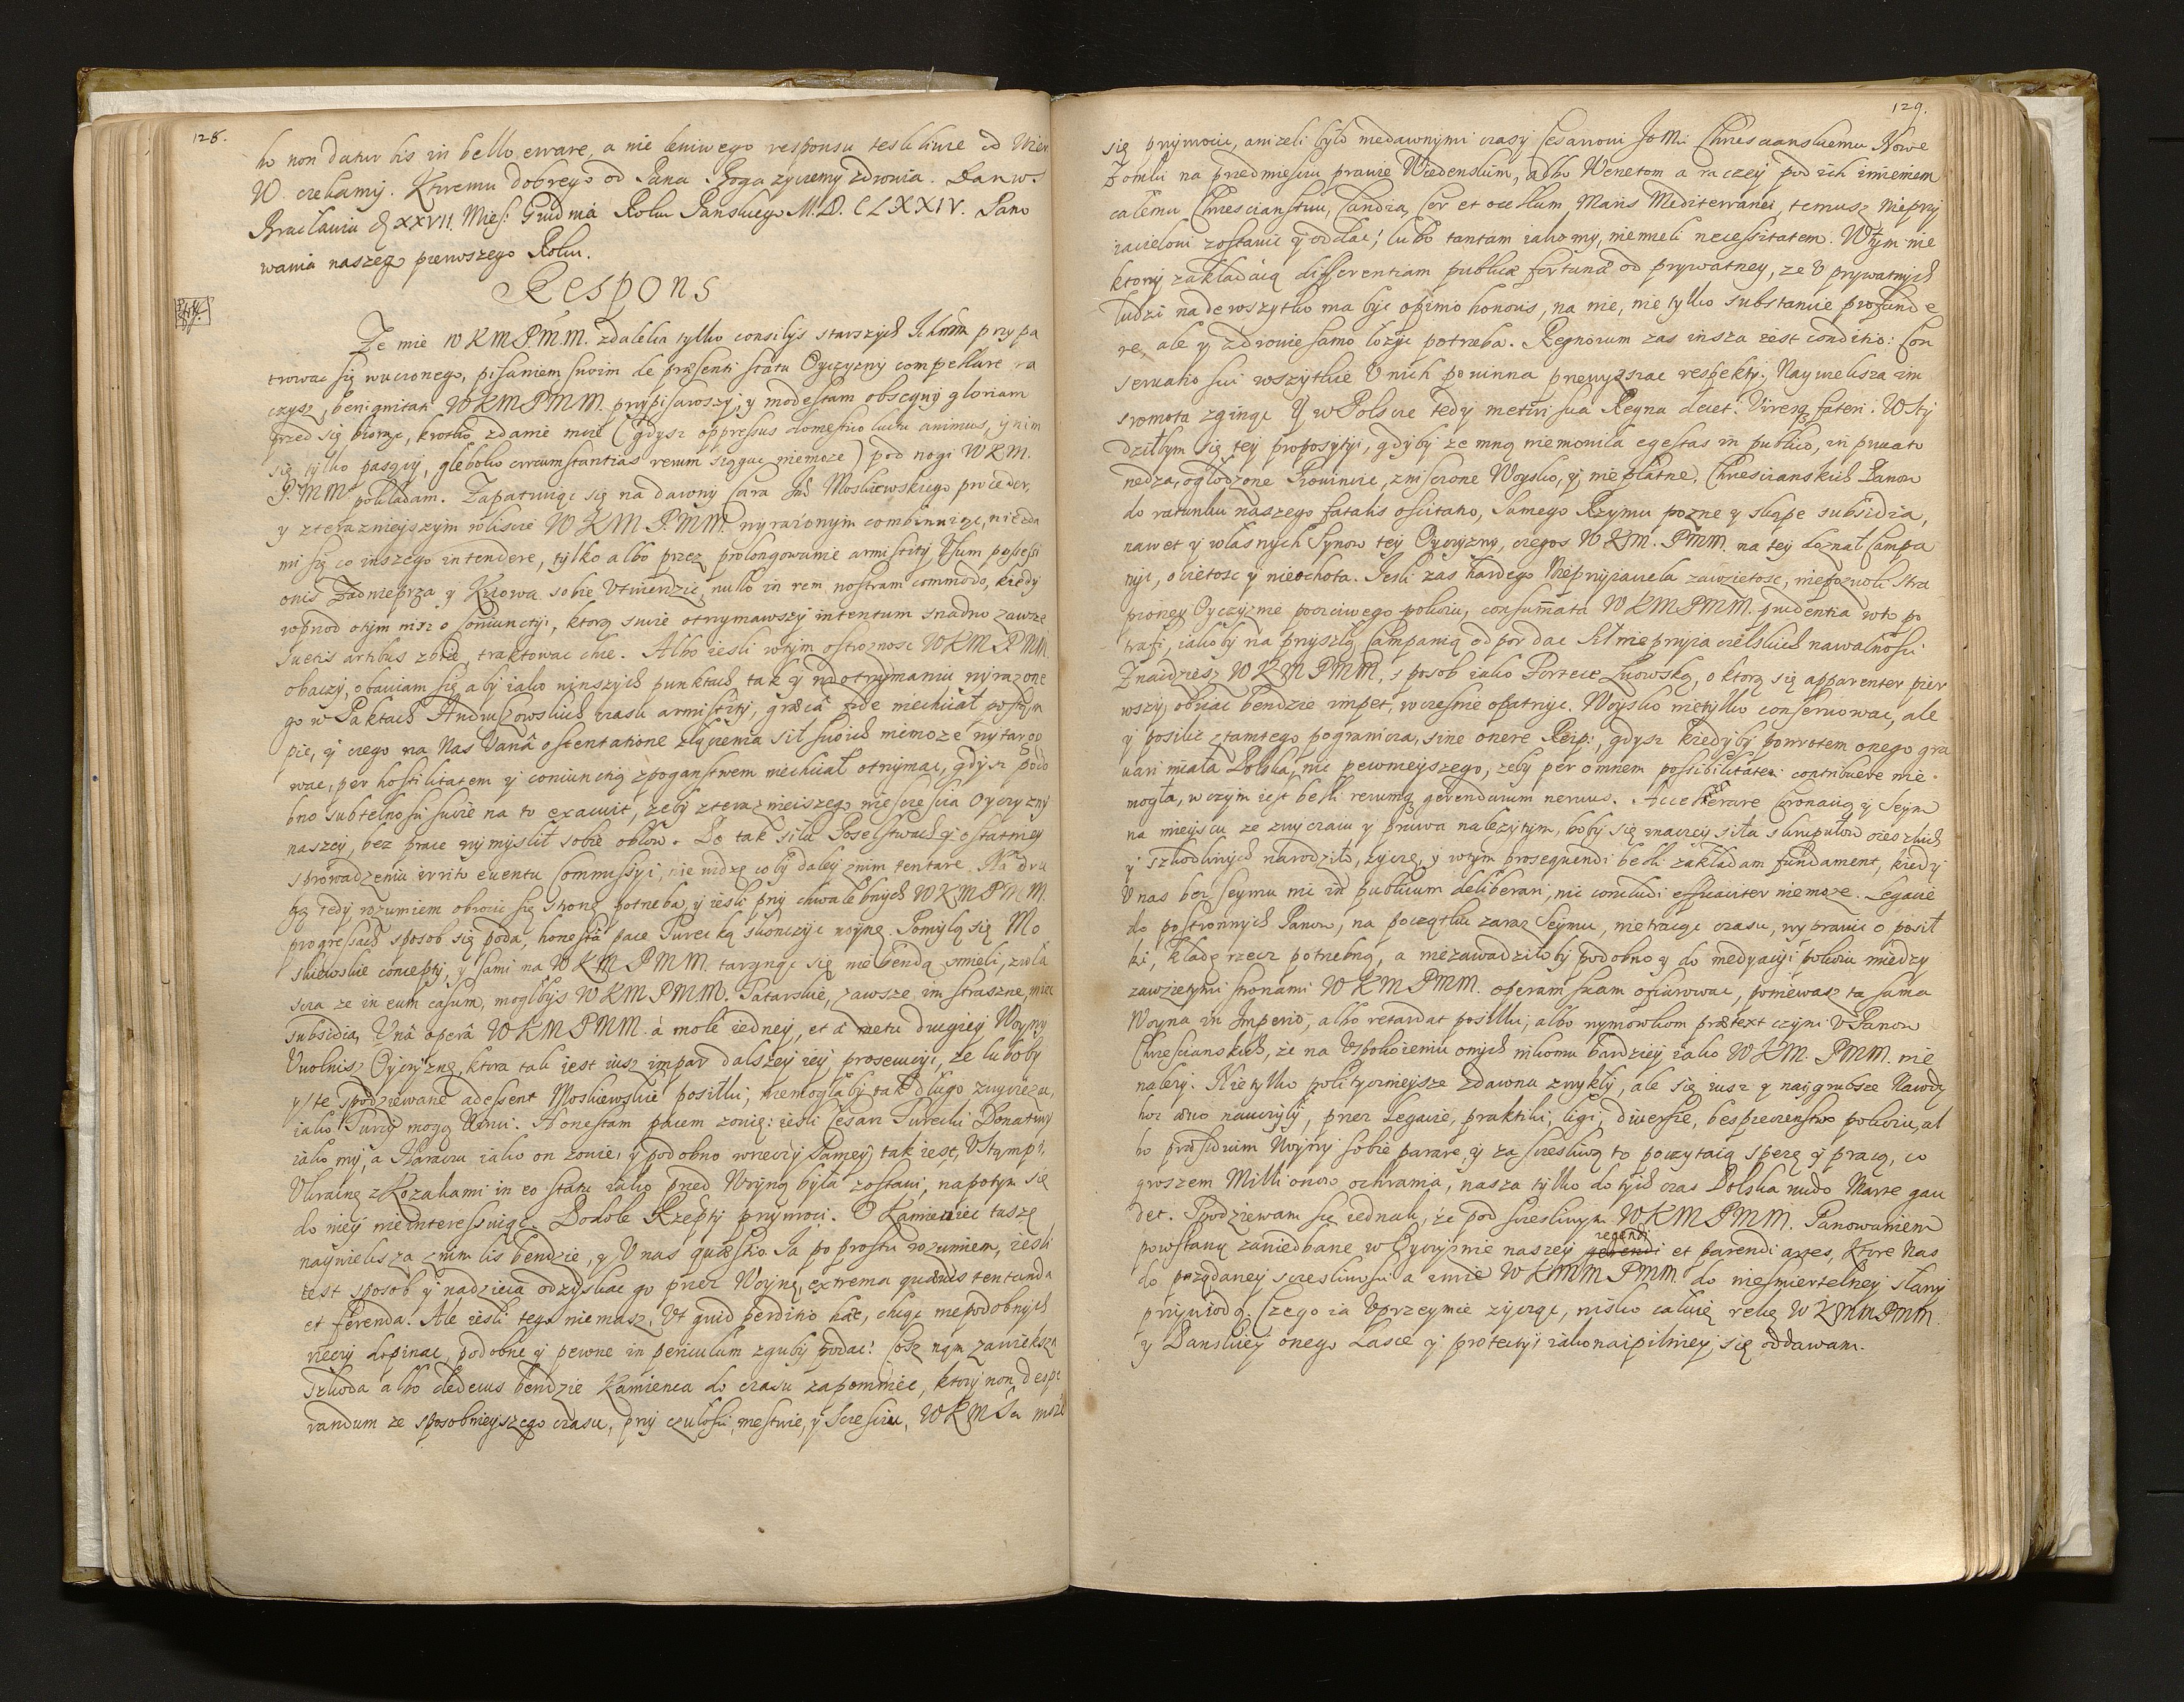 128.
bo non datur bis in bello errare, a nie leniwego responsu teskliwie od Wier
W. czekamy. Ktoremu dobrego od Pana Boga zyczemy zdrowia. Dan w
Braclawiu d. XXVII Mies: Grudnia Roku Panskiego M.D.CLXXIV. Pano
wania naszego pierwszego Roku.
Respons
Ze mie WKMPM.M. zdaleka tylko consilys starszych przypa
trowac się wuczonego, pisaniem swoim de præsenti statu Oyczyzny compellare ra
czysz, benignitati WKMPMM. przypisawszy, y modestam obsequij gloriam
przed się biorąc, krotko zdanie moie (gdysz oppressus domestico luctu animus, y nim
się tylko pasący, gleboko circumstantias rerum sięgac niemoze) pod nogi WKM.
P.MM pokładam. Zapatruiąc się na dawny Cara Moskiewskiego proceder,
y zterazniejszym w liscie WKM PMM. wyrazonym combinuiąc, niezda
mi się co inszego intendere, tylko albo przez prolongowanie armistitij Usum possessi
onis Zadnieprza y Kiiowa sobie Utwierdzic, nullo in rem nostram commodo, kiedy
wprzod otym nisz o coniunctyi, ktorą snie otrzymawszy intentum snadno zawsze
suetis artibus zbic, traktowac chce. Albo iesli wtym ostroznosc WKM PMM.
obaczy, obawiam się aby iako winszych punktach tak y wdotrzymaniu wyrazone
go w Paktach Andruszowskich czasu armistitij, græcâ fide niechciał postąm
pic, y czego na Nas vanâ ostentatione złączenia sił swoich niemoze wytargo
wac, per hostilitatem y coniunctią zpoganstwem niechciał otrzymac, gdysz podo
bno subtelnosci swoie na to exacuit, zeby zterazniejszego niesczescia Oyczyzny
naszey, bez prace wymyslił sobie obłow. Po tak siłu Poselstwach y ostatniey
sprowadzeniu irrito euentu Commissyi, nie widzę coby daley znim tentare. Na dru
gą tedy rozumiem obrocic się stronę potrzeba, y iesli przy chwalebnych WKMPMM.
progressach sposob się poda, honestâ pace Turecką skonczyc woynę. Pomylą się Mo
skiewskie concepty, y sami na WKMPMM. targnąc się nie bendą smieli, zwła
scza ze in eum casum, moglbys WKMPMM. Tatarskie, zawsze im straszne, miec
subsidia, Unâ operâ WKMPMM. à mole iedney, et à metu drugiey Woyny
Uwolnisz Oyczyznę, ktora tak iest iusz impar dalszey iey prosecucyi, ze luboby
y te spodziewane adessent Moskiewskie posiłki, niemogłaby tak długo zwycięzac,
iako Turcy mogą . Honestam pacem zowię: iesli Cesarz Turecki Donatiwy
iako my, a Haraczu iako on zowie, y podobno wrzeczy samey tak iest, Ustąmpi,
Ukrainę zKozakami in eo statu iako przed Woyną była zostawi, napotym się
do niey nieinteressuiąc. Podole Rzeptey przywroci. O Kamieniec tuszę
naywieksza znim lis bendzie, y Unas quæstio. Ja po prostu rozumiem, iesli
iest sposob y nadzieia odzyskac go przez Woynę, extrema quævis tentanda
et ferenda. Ale iesli tego niemasz, Ut quid perditio hæc, chcąc niepodobnych
rzeczy dopinac, podobne y pewne in periculum zguby podac? Cosz nam zawieksza
szkoda albo dedecus bendzie Kamienca do czasu zapomniec, ktory non despe
randum ze sposobnieyszego czasu, przy czułosci, mestwie, y sczesciu, WKM moze
129.
się przywrocic, anizeli było niedawnymi czasy Cesarzowi JoMci Chrzescianskiemu Nowe
Zomki na przedmiesciu prawie Wiedenskim, albo Wenetom a raczey pod ich imieniem
całemu Chrzescianstwu, Candią, Cor et ocellum Maris Mediterranei, temusz Nieprzy
iacielowi zostawic y oddac; lubo tantam iako my, niemieli necessitatem. Wtym nie
ktorzy zakładaią differentiam publicæ fortunæ od prywatney, ze V prywatnych
ludzi nadewszytko ma byc opinio honoris, na nie, nie tylko substancie profunde
re, ale y zdrowie samo łozyc potrzeba. Regnorum zas insza iest conditio: Con
seruatio sui wszytkie Vnich powinna przewyzszac respekty. Naywieksza im
sromota zginąc Y w Polscze tedy metiri sua Regna decet. Viresq fateri. Wsty
dziłbym się tey propozytyi, gdyby ze mną niemowila egestas in publico, in priuato
nedza, ogłodzone Prowincie, zniszczone Woysko, y nie płatne, Chrzescianskich Panow
do ratunku naszego fatalis oscitatio, samego Rzymu pozne y skąpe subsidia,
nawet y własnych Synow tey Oyczyzny, czegos WKM. PMM. na tey doznał Campa
niji, ocietosc y nieochota. Iesli zas hardego Nieprzyiaciela zawzietosc, niepozwoli stra
pioney Oyczyznie poczciwego pokoiu, consummata WKMPMM. prudentia wto po
trafi, iakoby na przyszłą Campanią odpor dac Sił nieprzyiacielskich nawalnosci
Znaidziesz WKMPMM, sposob iako Fortece Lwowską, o ktorą się apparenter pier
wszy obiiac bendzie impet, wczesnie opatrzyc. Woysko nietylko conserwowac, ale
y posilic ztamtego pogranicza, sine onere Reip:, gdysz kiedyby powrotem onego gra
uari miała Polska, nic pewnieyszego, zeby per omnem possibilitatem contribuere nie
mogła, w czym iest belli rerumq gerendarum neruus. Accelerare Coronacią y Seym
na mieyscu ze zwyczaiu y prawa nalezytym, boby się inaczey siła skrupułow czeszkich
y szkodliwych narodziło, zyczę, y wtym prosequendi belli zakładam fundament, kiedy
V nas bez Seymu nic in publicum deliberari, nic concludi efficaciter niemoze. Legacie
do postronnych Panow, na początku zaraz Seymu, nietracąc czasu, wyprawic o posił
ki, kładę rzecz potrzebną, a niezawadziłoby podobno y do medyacyi pokoiu miedzy
zawzietymi stronami WKMPMM. operam suam ofiarowac, poniewasz ta sama
Woyna in Imperio, albo retardat posilki, albo wymowkom prætext czyni V Panow
Chrzescianskich, że na Vspokoieniu onych nikomu bardziey iako WKM. PMM. nie
nalezy. Nie tylko politycznieysze zdawna zwykły, ale się iusz y naygrubsze Narody
hoc ævo nauczyły, przez Legacie, praktiki, ligi, diuersie, bespieczenstwo pokoiu, al
bo præsidium Woyny sobie parare, y za sczesliwą to poczytaią spezę y pracą, co
groszem Millionow ochrania, nasza tylko do tych czas Polska nudo Marte gau
det. Spodziewam się iednak, że pod sczesliwym WKMPMM. Panowaniem
powstaną zaniedbane w Oyczyznie naszey regendi gerendi et parendi artes, Ktore Nas
do porządaney sczesliwosci a imie WKMM PMM. do niesmiertelney sławy
przywiodą. Czego ia Vprzeymie zycząc, nisko całuię rekę WKMMPMM.
y Panskiey onego Łasce y protectyi iako naipilniey się oddawam.